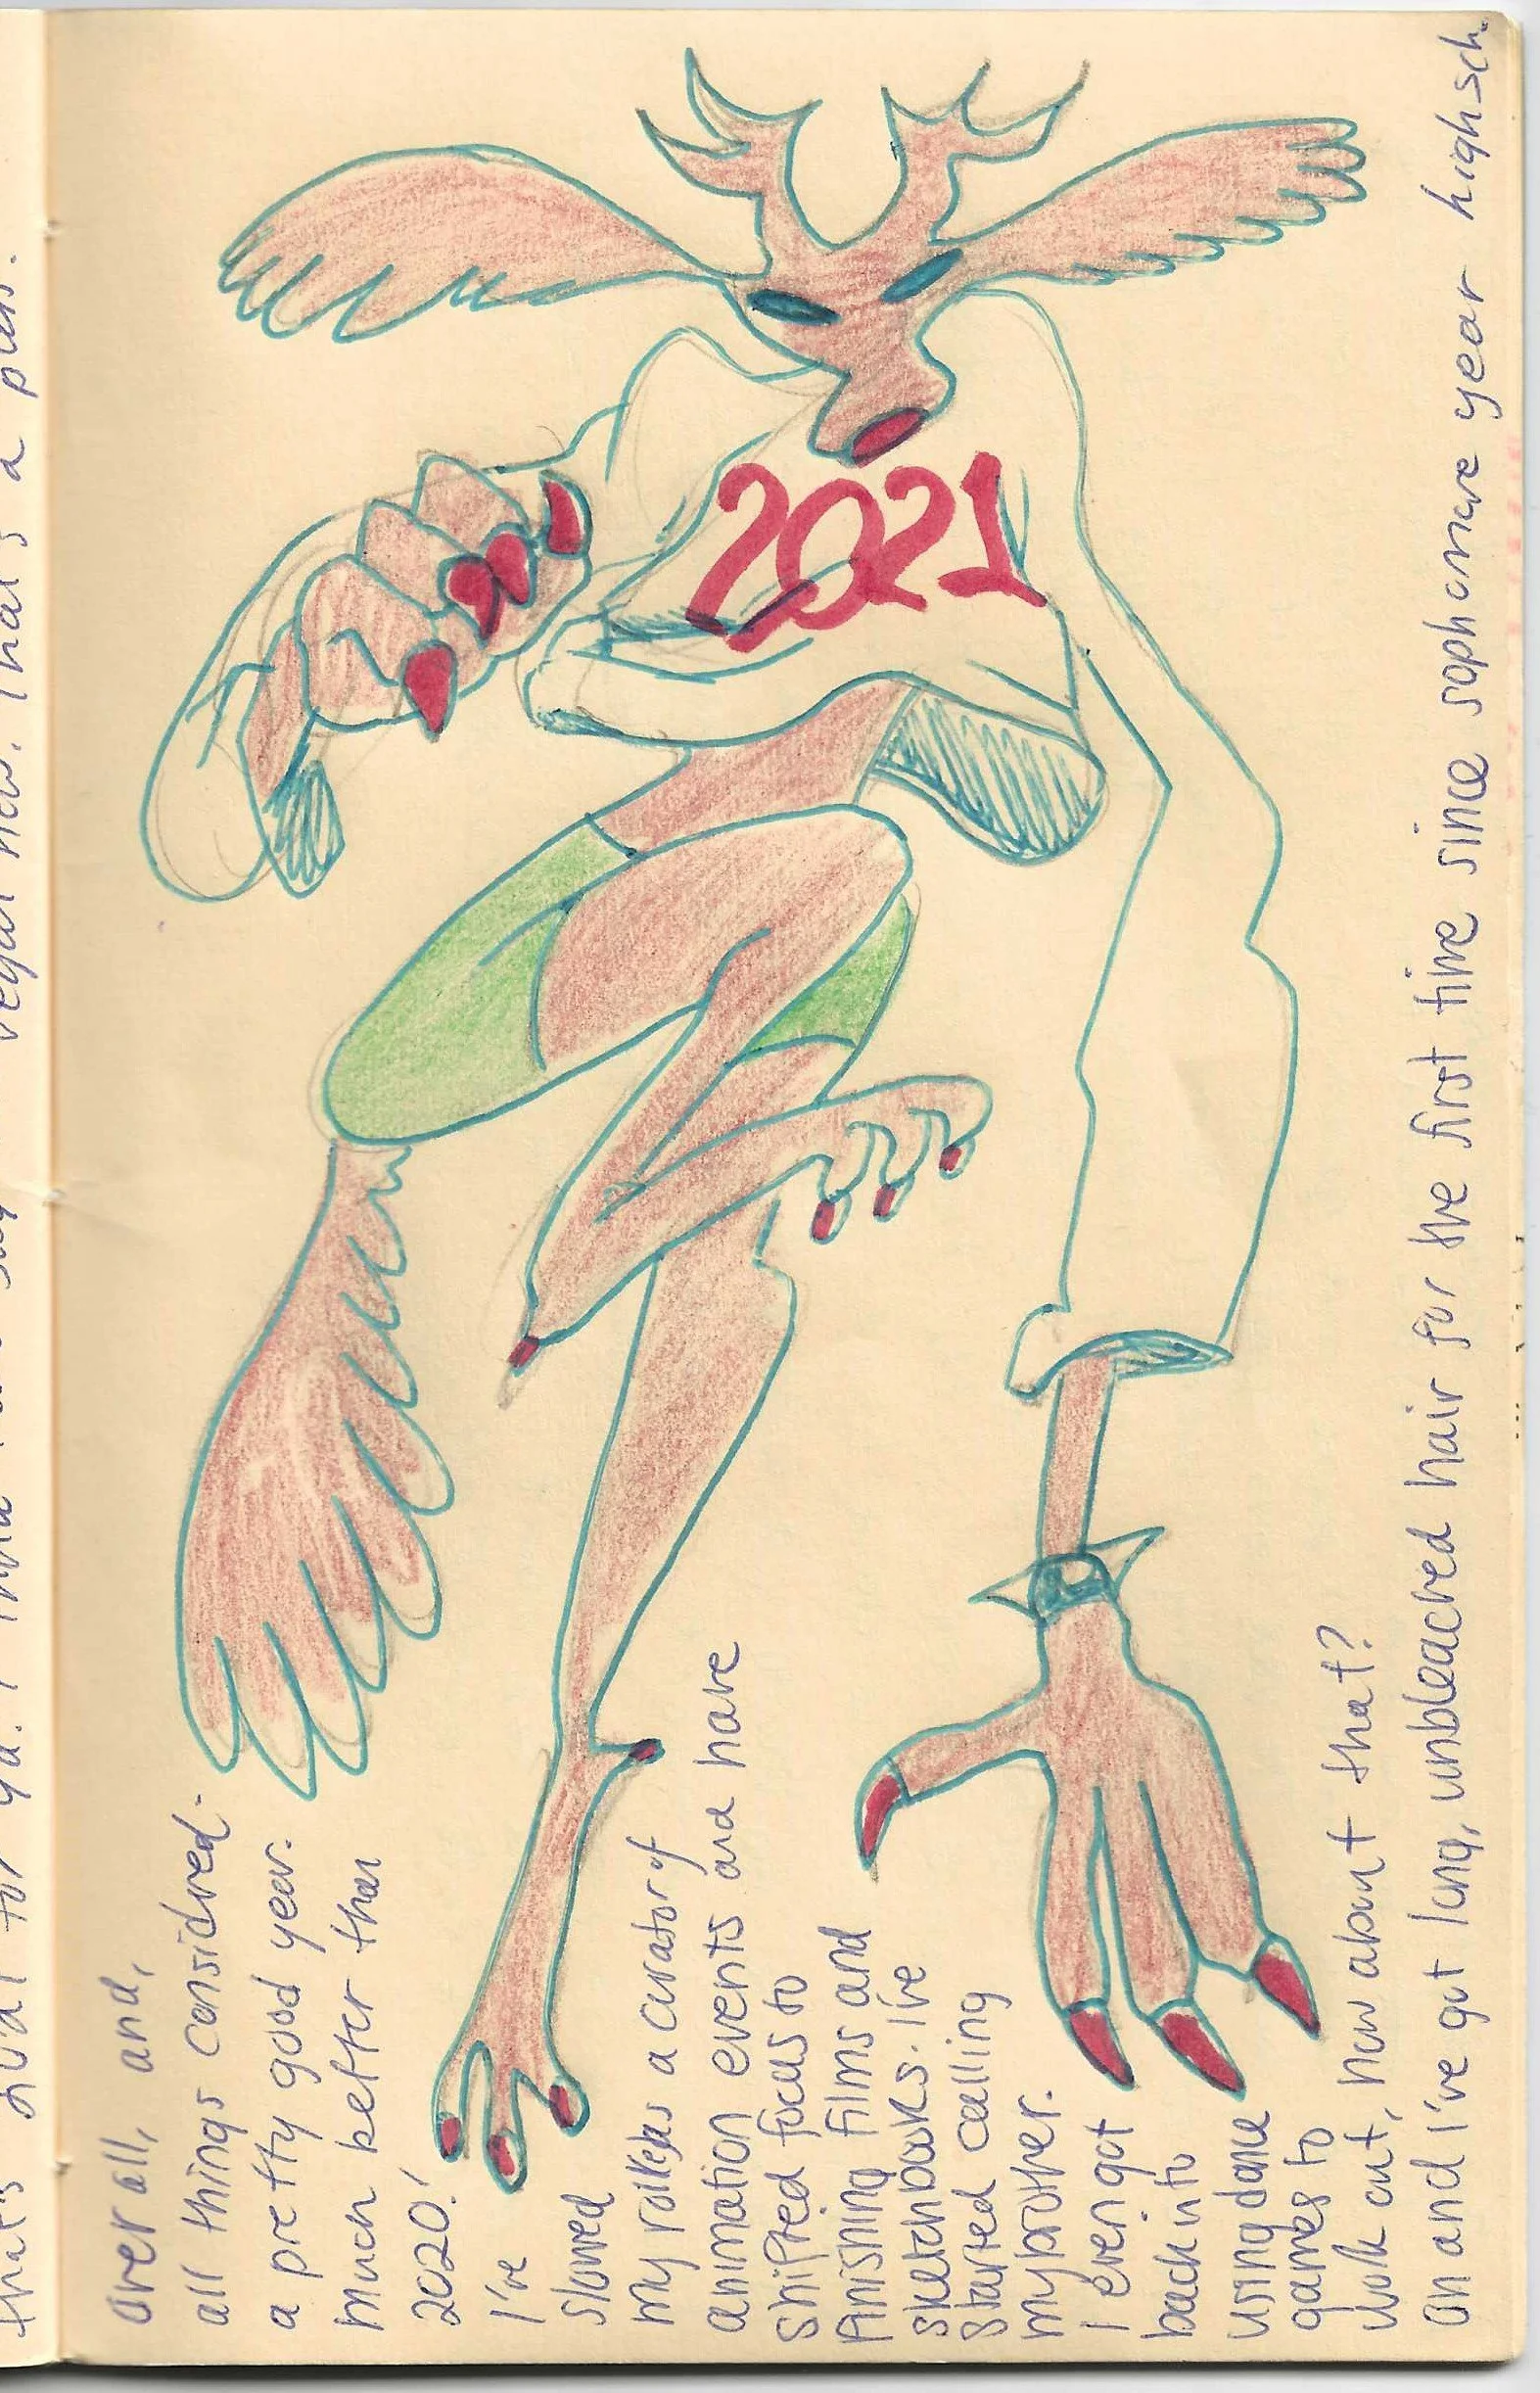 for ya. I vegan now. That's a
over all, and,
all things considred-
a pretty good year.
much better than
2020!
I've
slowed
my as a curator of
animation events and have
shifted focus to
finishing films and
sketchbooks. I've
started calling
my brother.
I even got
back into
using dance
games to
work out, how about that?
oh and I've got long, unbleached hair for the first time since sophomore year highsch.
2021